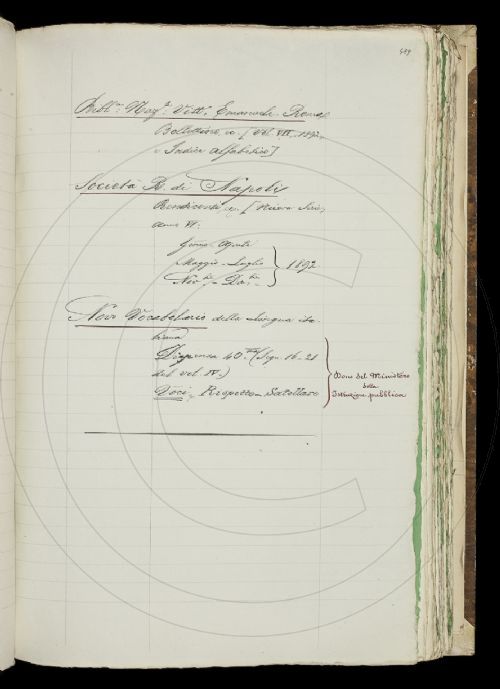 Bibl.ca Naz.e Vitt. Emanuele. Roma
Bollettino, [Vol. VII. 1892
Indice alfabetico]
Società R. di Napoli
Rendiconti [Nuova Serie,
anno VI:
Giugno Agosto
Maggio - Luglio
Nov.bre - Dic.bre
1892
Novo Vocabolario della lingua ita-
liana
Dispensa 40 (Segn. 16-21
del vol. IV.)
Voci, Rispetto - Satollare
Dono del Ministero
della
Istruzione pubblica